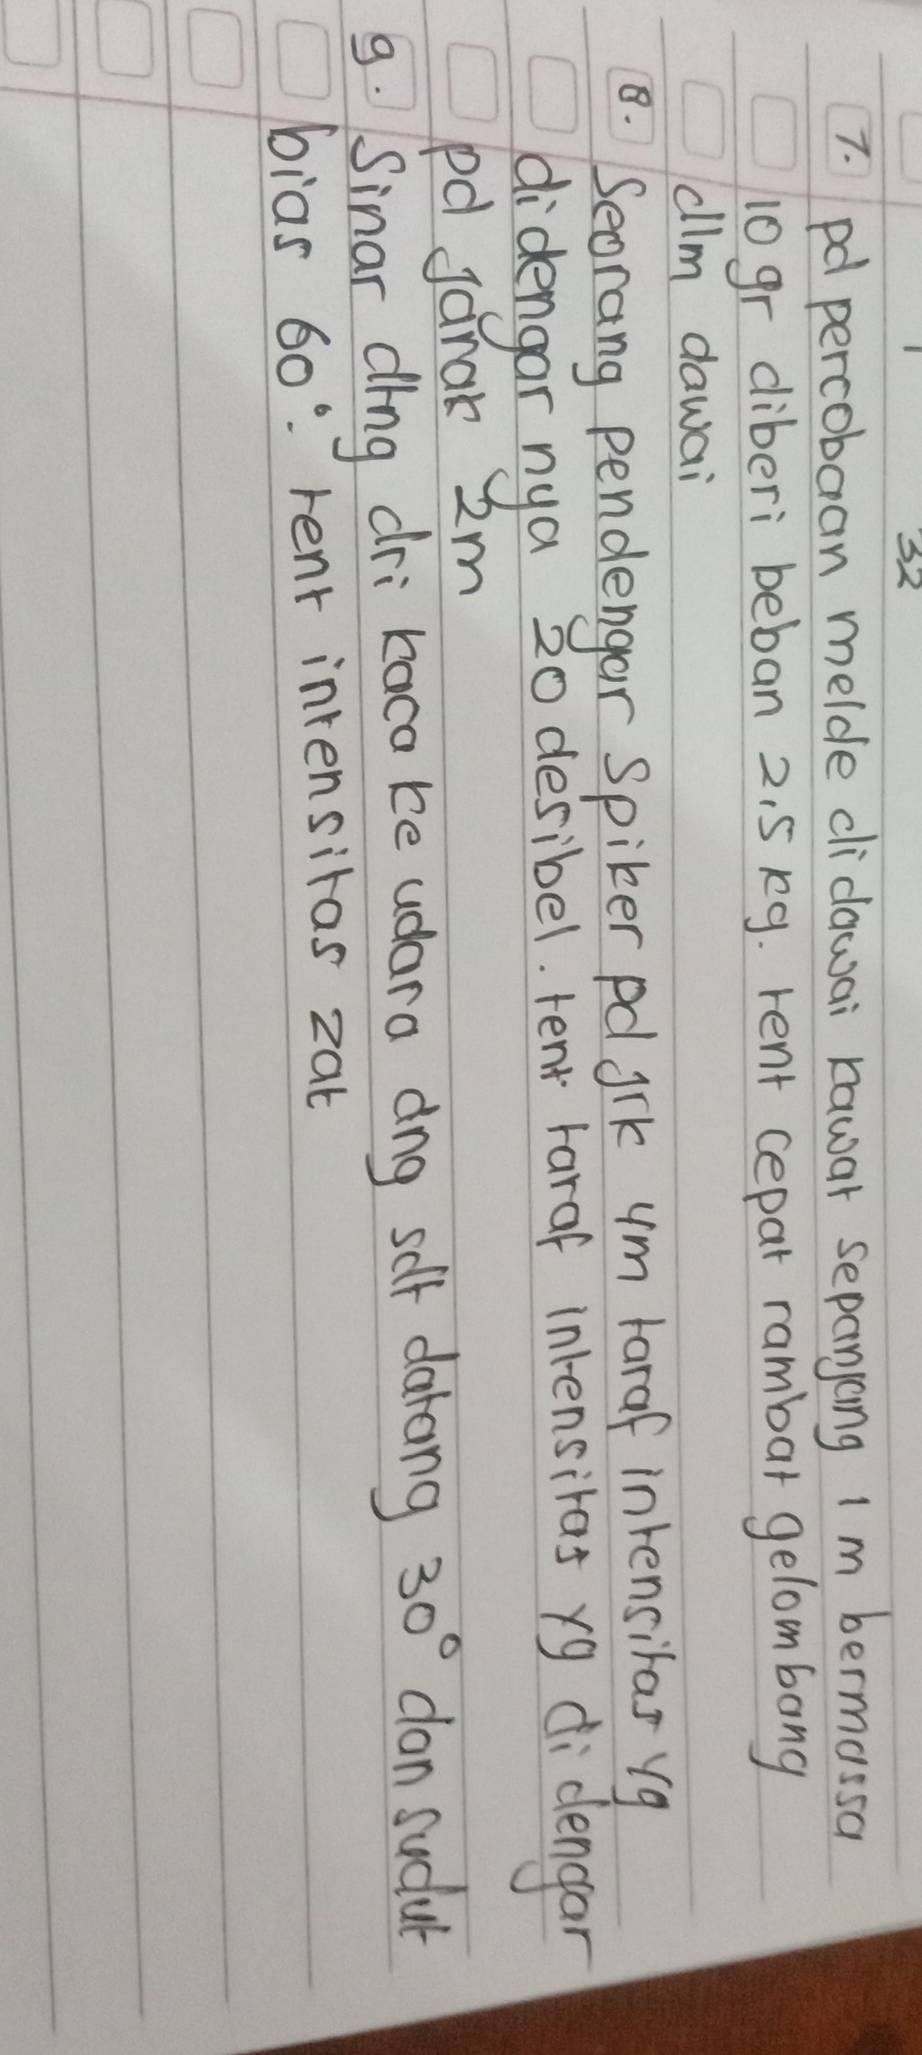 32
7. pd percobaan melde di dawai kawat sepanjang 1 m bermassa
10 gr diberi beban 2,5 kg. tent cepat rambat gelombang
dlm dawai
8. Seorang pendengar Spiker pd jrk 4m taraf intensitas yg
di dengar nya 20 desibel. tent taraf intensitas yg di dengar
pd jarak 2m
9. Sinar dtng dri kaca ke udara dng sdt datang 30° dan sudut
bias 60°. tent intensitas zat